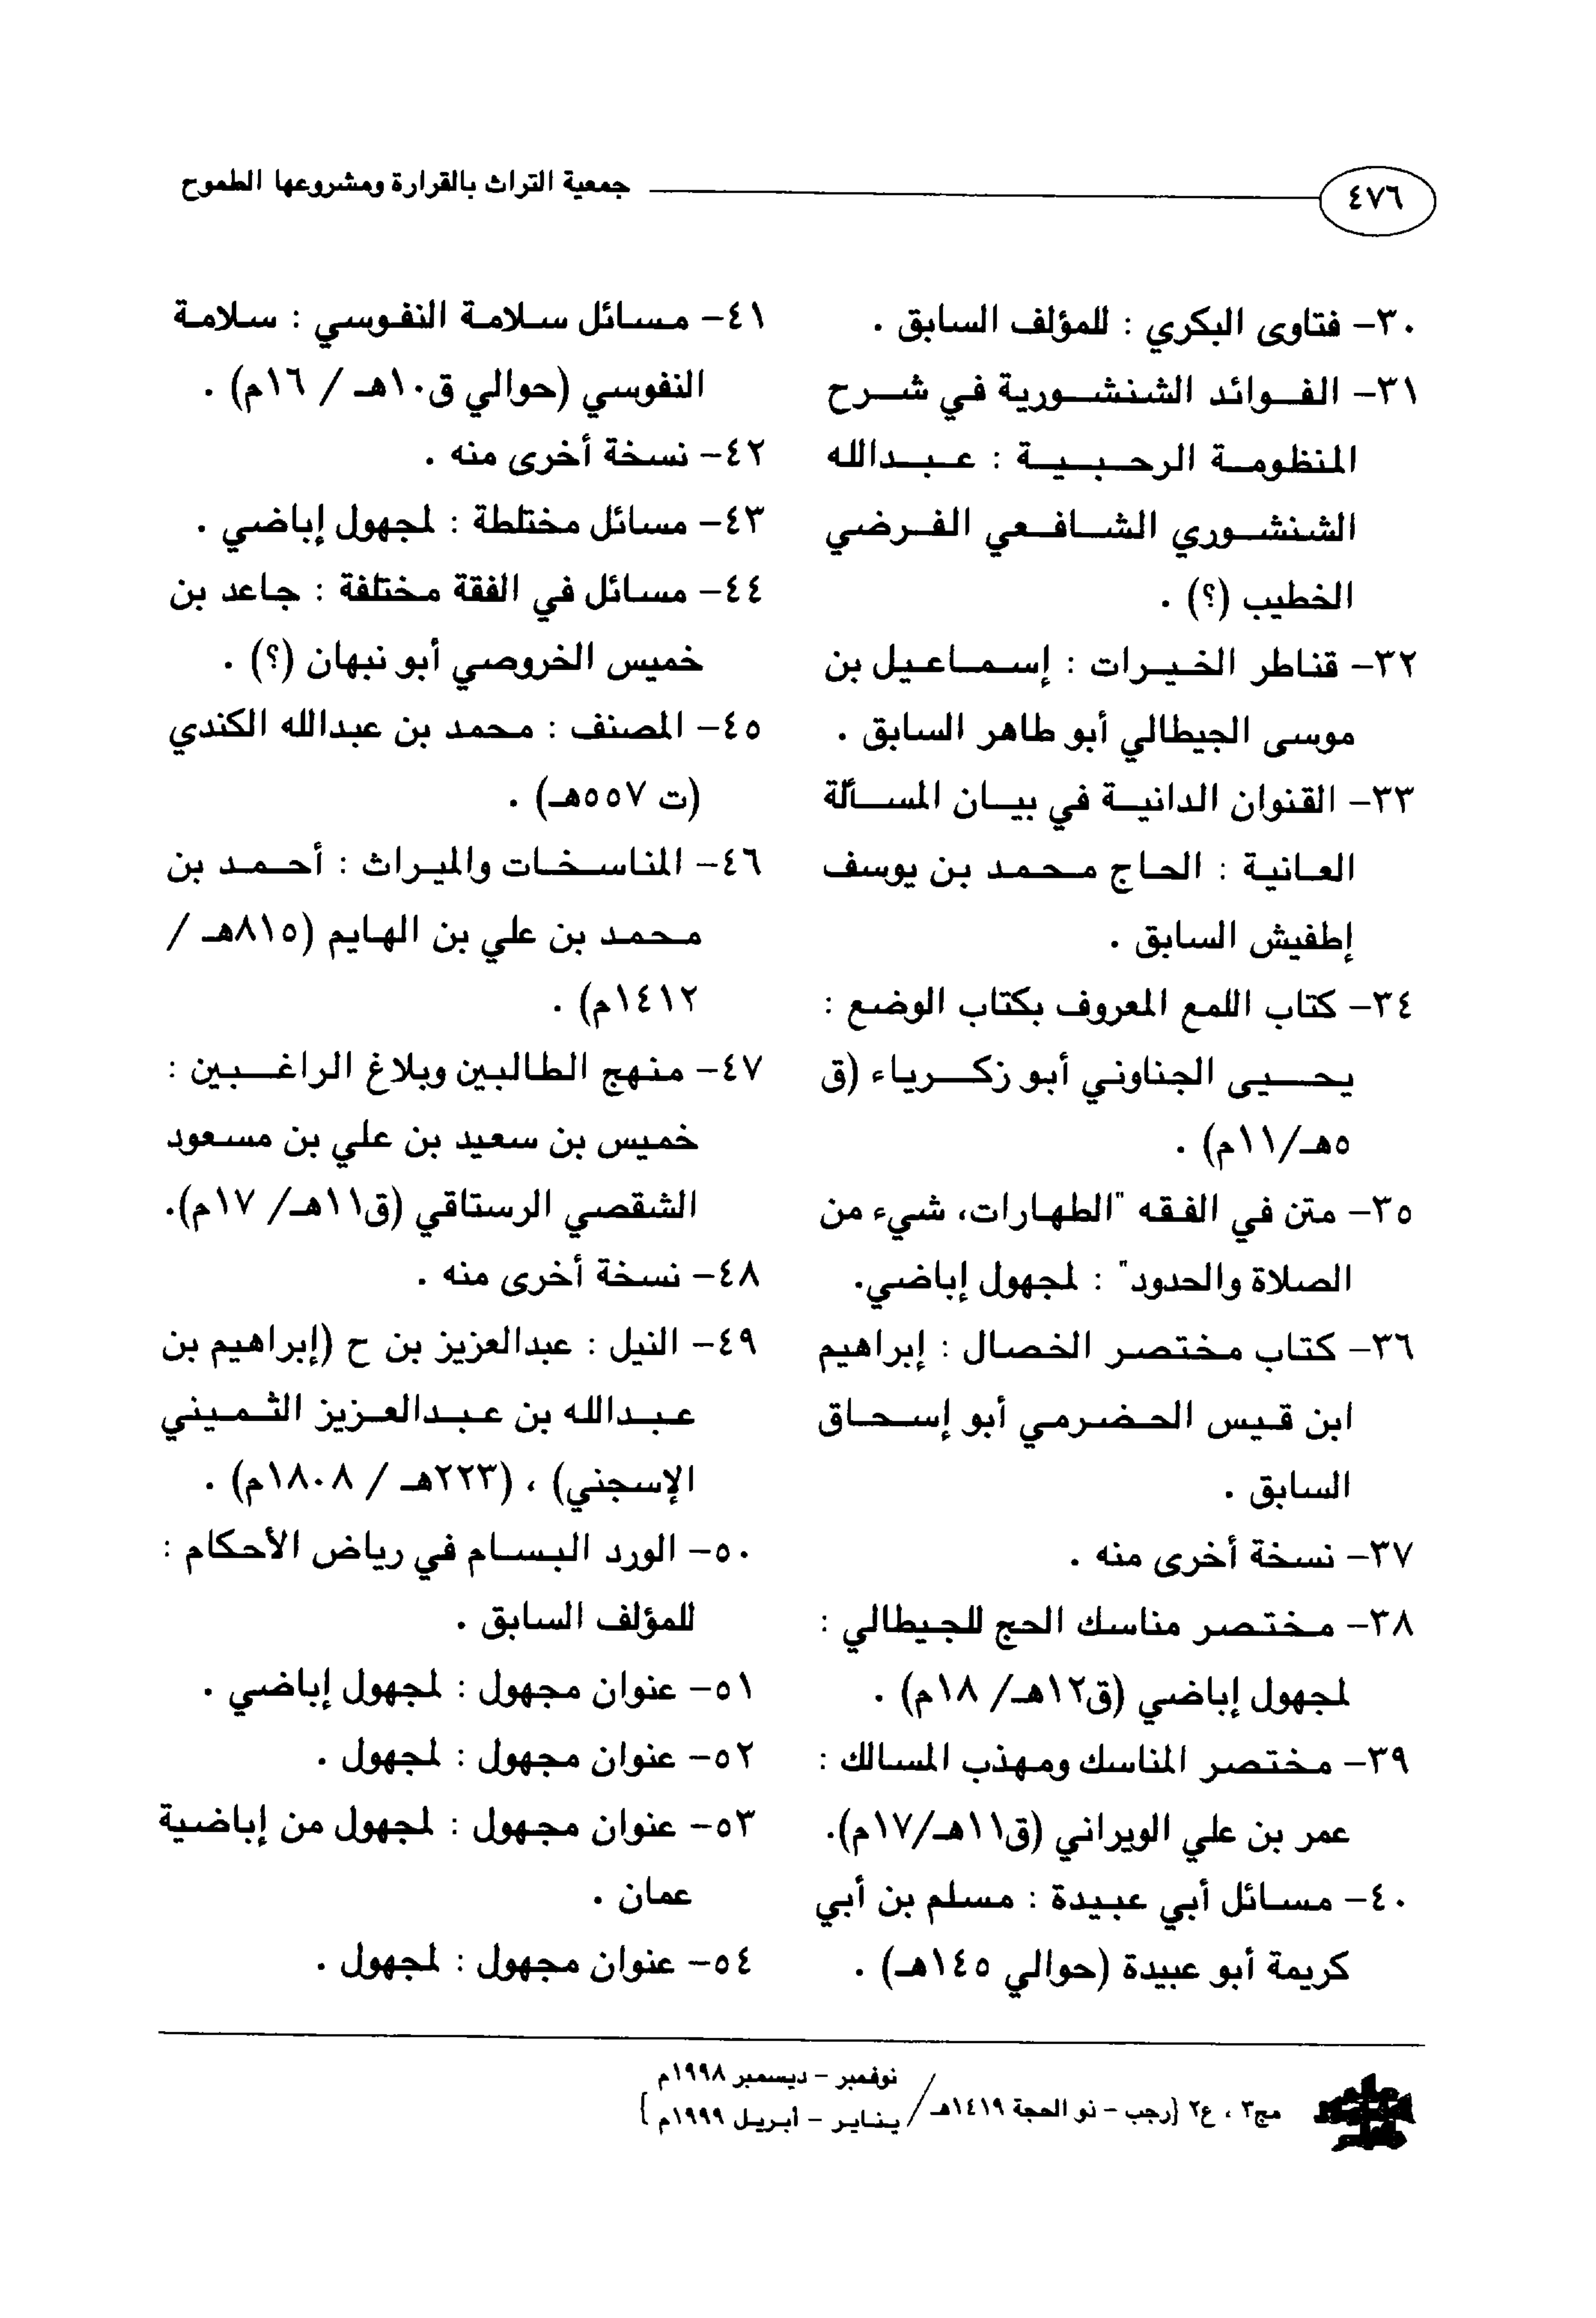 ٤٧٦
جمعية التراث بالقرارة ومشروعها الطموح
٣٠- فتاوى البكري : للمؤلف السابق .
٣١- الفوائد الشنشورية في شرح
المنظومة الرحبية : عبدالله
الشنشوري الشافعي الفرضي
الخطيب (؟) .
٣٢- قناطر الخيرات : إسماعيل بن
موسى الجيطالي أبو طاهر السابق .
٣٣- القنوان الدانية في بيان المسألة
العانية : الحاج محمد بن يوسف
إطفيش السابق .
٣٤- كتاب اللمع المعروف بكتاب الوضع :
يحيى الجناوني أبو زكرياء (ق
٥هـ/١١م) .
٣٥- متن في الفقه "الطهارات، شيء من
الصلاة والحدود" : لمجهول إباضي.
٣٦- كتاب مختصر الخصال : إبراهيم
ابن قيس الحضرمي أبو إسحاق
السابق .
٣٧- نسخة أخرى منه .
٣٨- مختصر مناسك الحج للجيطالي :
لمجهول إباضي (ق١٢هـ/ ١٨م) .
٣٩- مختصر المناسك ومهذب المسالك :
عمر بن علي الويراني (ق١١هـ/١٧م).
٤٠- مسائل أبي عبيدة : مسلم بن أبي
كريمة أبو عبيدة (حوالي ١٤٥هـ) .
٤١- مسائل سلامة النفوسي : سلامة
النفوسي (حوالي ق١٠هـ / ١٦م) .
٤٢- نسخة أخرى منه .
٤٣- مسائل مختلطة : لمجهول إباضي .
٤٤- مسائل في الفقة مختلفة : جاعد بن
خميس الخروصي أبو نبهان (؟) .
٤٥- المصنف : محمد بن عبدالله الكندي
(ت ٥٥٧هـ) .
٤٦- المناسخات والميراث : أحمد بن
محمد بن علي بن الهايم (٨١٥هـ /
١٤١٢م) .
٤٧- منهج الطالبين وبلاغ الراغبين :
خميس بن سعيد بن علي بن مسعود
الشقصي الرستاقي (ق١١هـ/ ١٧م).
٤٨- نسخة أخرى منه .
٤٩- النيل : عبدالعزيز بن ح (إبراهيم بن
عبدالله بن عبدالعزيز الثميني
الإسجني) ، (٢٢٣هـ / ١٨٠٨م) .
٥٠- الورد البسام في رياض الأحكام :
للمؤلف السابق .
٥١- عنوان مجهول : لمجهول إباضي .
٥٢- عنوان مجهول : لمجهول .
٥٣- عنوان مجهول : لمجهول من إباضية
عمان .
٥٤- عنوان مجهول : لمجهول .
مج٣ ، ع٢ {رجب - ذو الحجة ١٤١٩هـ/
نوفمبر - ديسمبر ١٩٩٨م
يناير - أبريل ١٩٩٩م }